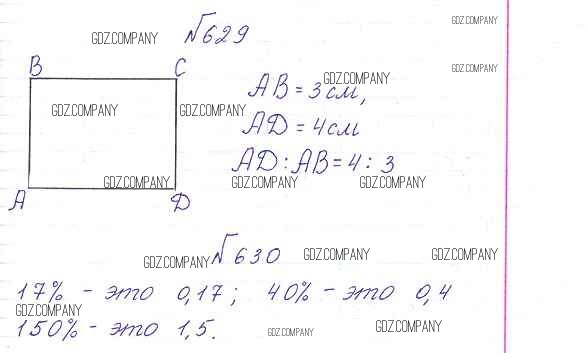 №629
GDZ.COMPANY
GDZ.COMPANY
B C
GDZ.COMPANY
GDZ.COMPANY
AB = 3 см,
GDZ.COMPANY
GDZ.COMPANY
AD = 4 см
AD : AB = 4 : 3
GDZ.COMPANY
GDZ.COMPANY
GDZ.COMPANY
A D
№630
GDZ.COMPANY
GDZ.COMPANY
GDZ.COMPANY
17% - это 0,17; 40% - это 0,4
GDZ.COMPANY
150% - это 1,5.
GDZ.COMPANY
GDZ.COMPANY